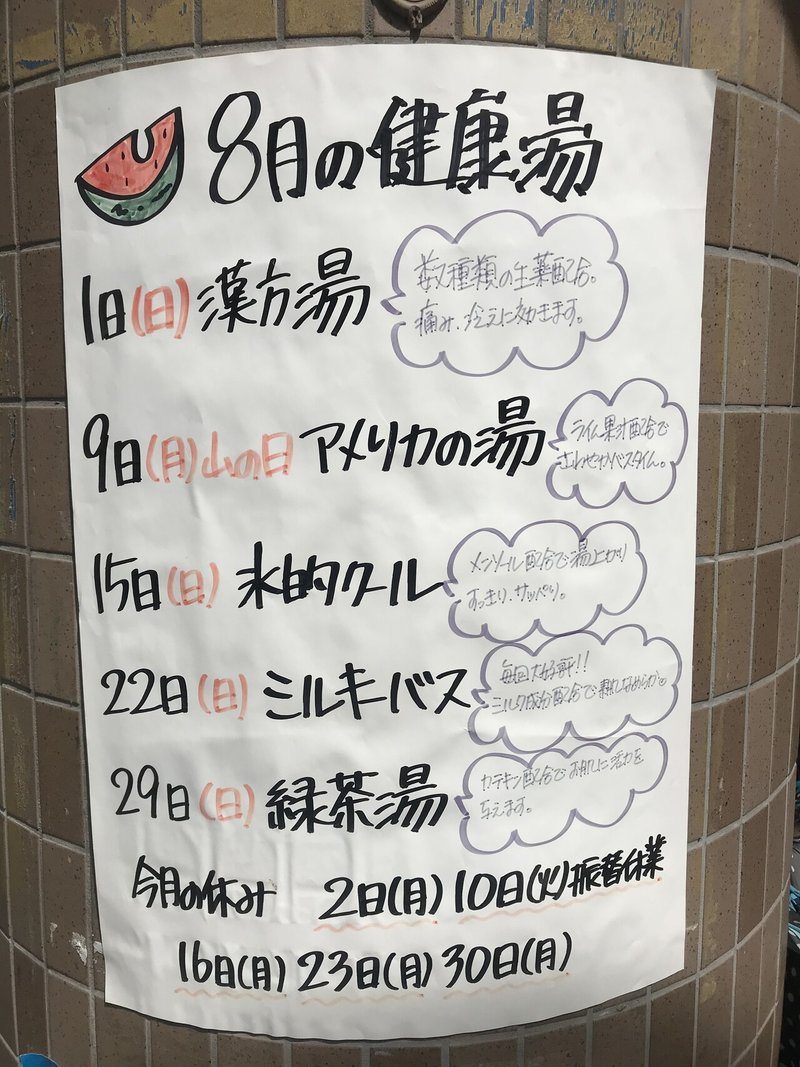 8月の健康湯
1日(日) 漢方湯
数種類の生薬配合。
痛み、冷えに効きます。
9日(月)山の日 アメリカの湯
ライム果汁配合で
さわやかバスタイム。
15日(日) 氷的クール
メンソール配合で湯上がり
すっきり、サッパリ。
22日(日) ミルキーバス
毎回大好評!!
ミルク成分配合で素肌なめらか。
29日(日) 緑茶湯
カテキン配合でお肌に活力を
与えます。
今月の休み 2日(月) 10日(火)振替休業
16日(月) 23日(月) 30日(月)